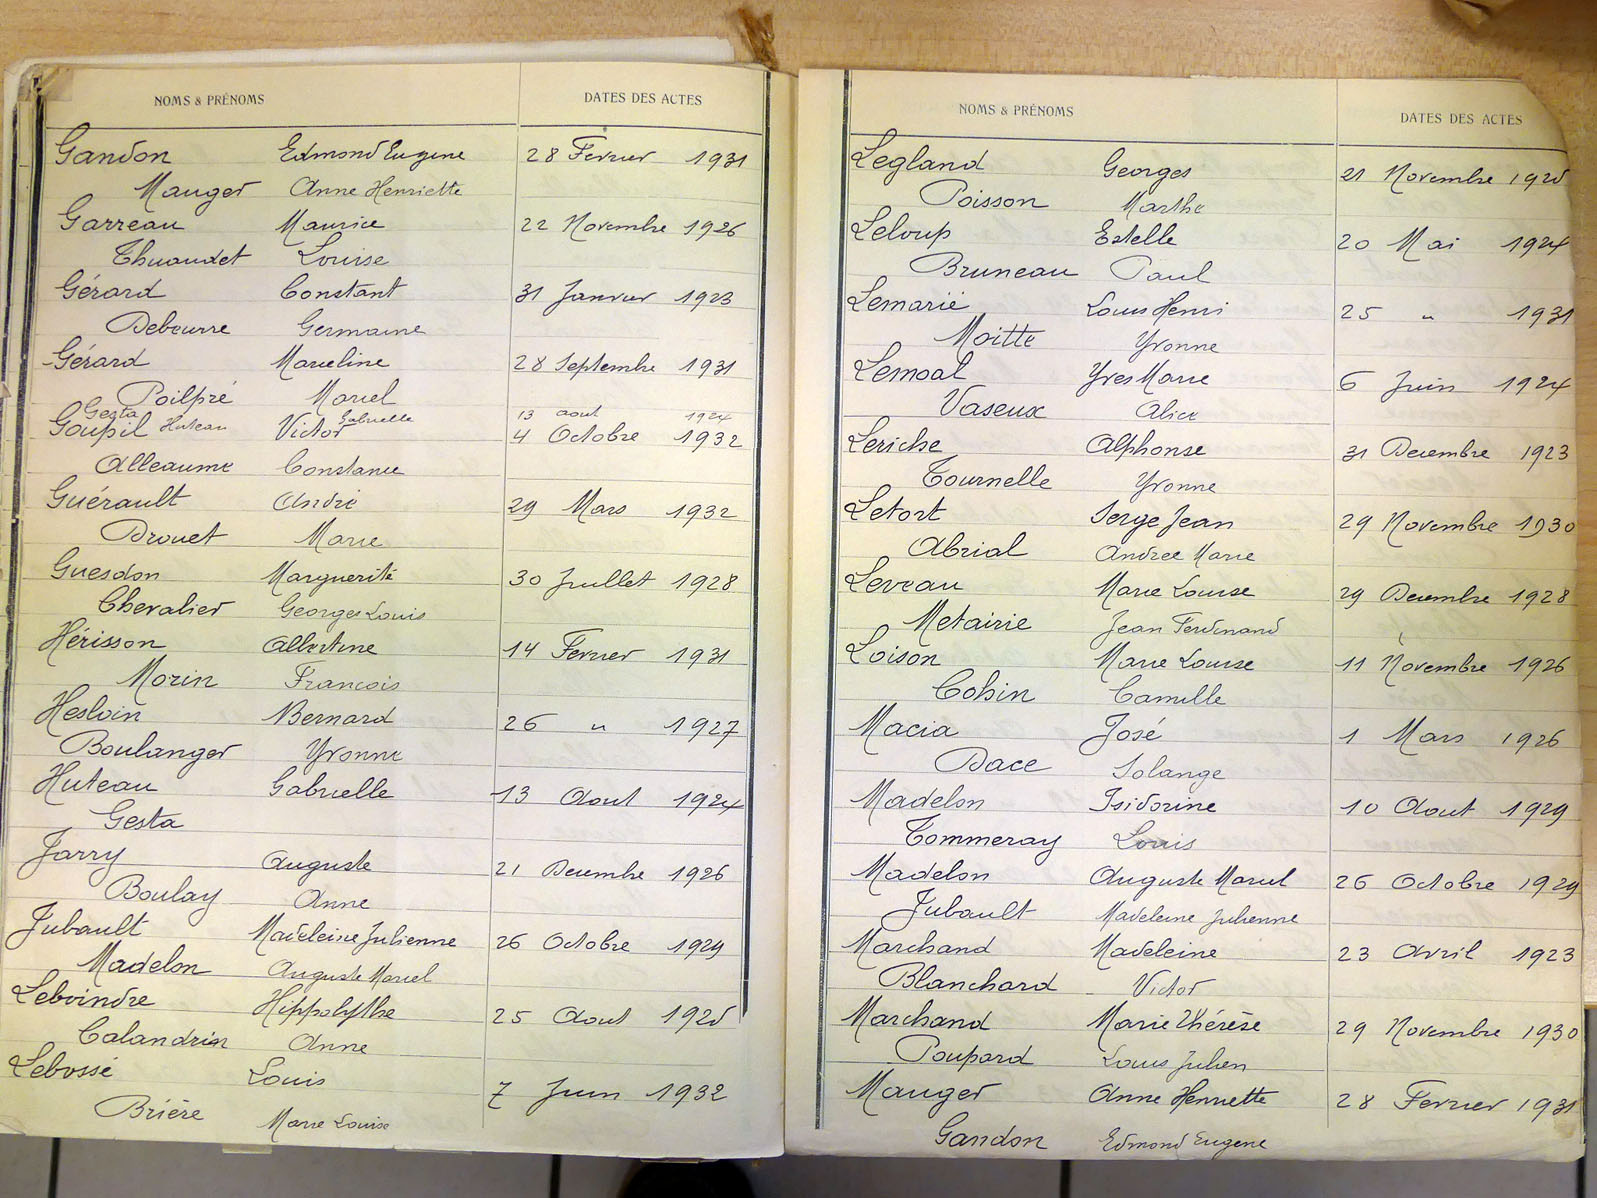 NOMS & PRÉNOMS DATES DES ACTES
Gandon Edmond Eugene 28 Fevrier 1931
Mauger Anne Henriette
Garreau Maurice 22 Novembre 1926
Thuaudet Louise
Gérard Constant 31 Janvier 1923
Debeurre Germaine
Gérard Marceline 28 Septembre 1931
Poilpré Marcel
Gesta Huteau Gabrielle 13 aout 1924
Goupil Victor 4 Octobre 1932
Alleaume Constance
Guérault André 29 Mars 1932
Drouet Marie
Guesdon Marguerite 30 Juillet 1928
Chevalier Georges Louis
Hérisson Albertine 14 Fevrier 1931
Morin Francois
Hesloin Bernard 26 " 1927
Boulanger Yvonne
Huteau Gabrielle 13 Aout 1924
Gesta
Jarry Auguste 21 Decembre 1926
Boulay Anne
Jubault Madeleine Julienne 26 Octobre 1929
Madelon Auguste Marcel
Leboindre Hippolythe 25 Aout 1925
Calandrin Anne
Lebossé Louis 7 Juin 1932
Brière Marie Louise
NOMS & PRÉNOMS DATES DES ACTES
Legland Georges 21 Novembre 1925
Poisson Marthe
Leloup Estelle 20 Mai 1924
Bruneau Paul
Lemarié Louis Henri 25 " 1931
Moitte Yvonne
Lemoal Yves Marie 6 Juin 1924
Vaseux Alice
Leriche Alphonse 31 Decembre 1923
Tournelle Yvonne
Letort Serge Jean 29 Novembre 1930
Abrial Andree Marie
Leveau Marie Louise 29 Decembre 1928
Metairie Jean Ferdinand
Loison Marie Louise 11 Novembre 1926
Cohin Camille
Macia José 1 Mars 1926
Dace Solange
Madelon Isidorine 10 Aout 1929
Tommeray Louis
Madelon Auguste Marcel 26 Octobre 1929
Jubault Madeleine Julienne
Marchand Madeleine 23 Avril 1923
Blanchard Victor
Marchand Marie Thérèse 29 Novembre 1930
Poupard Louis Julien
Mauger Anne Henriette 28 Fevrier 1931
Gandon Edmond Eugene